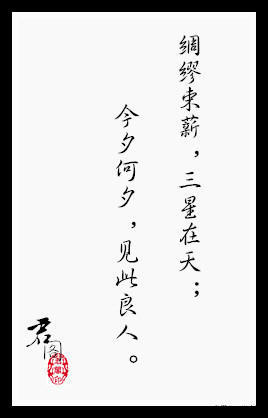 绸缪束薪，三星在天；
今夕何夕，见此良人。
君阁